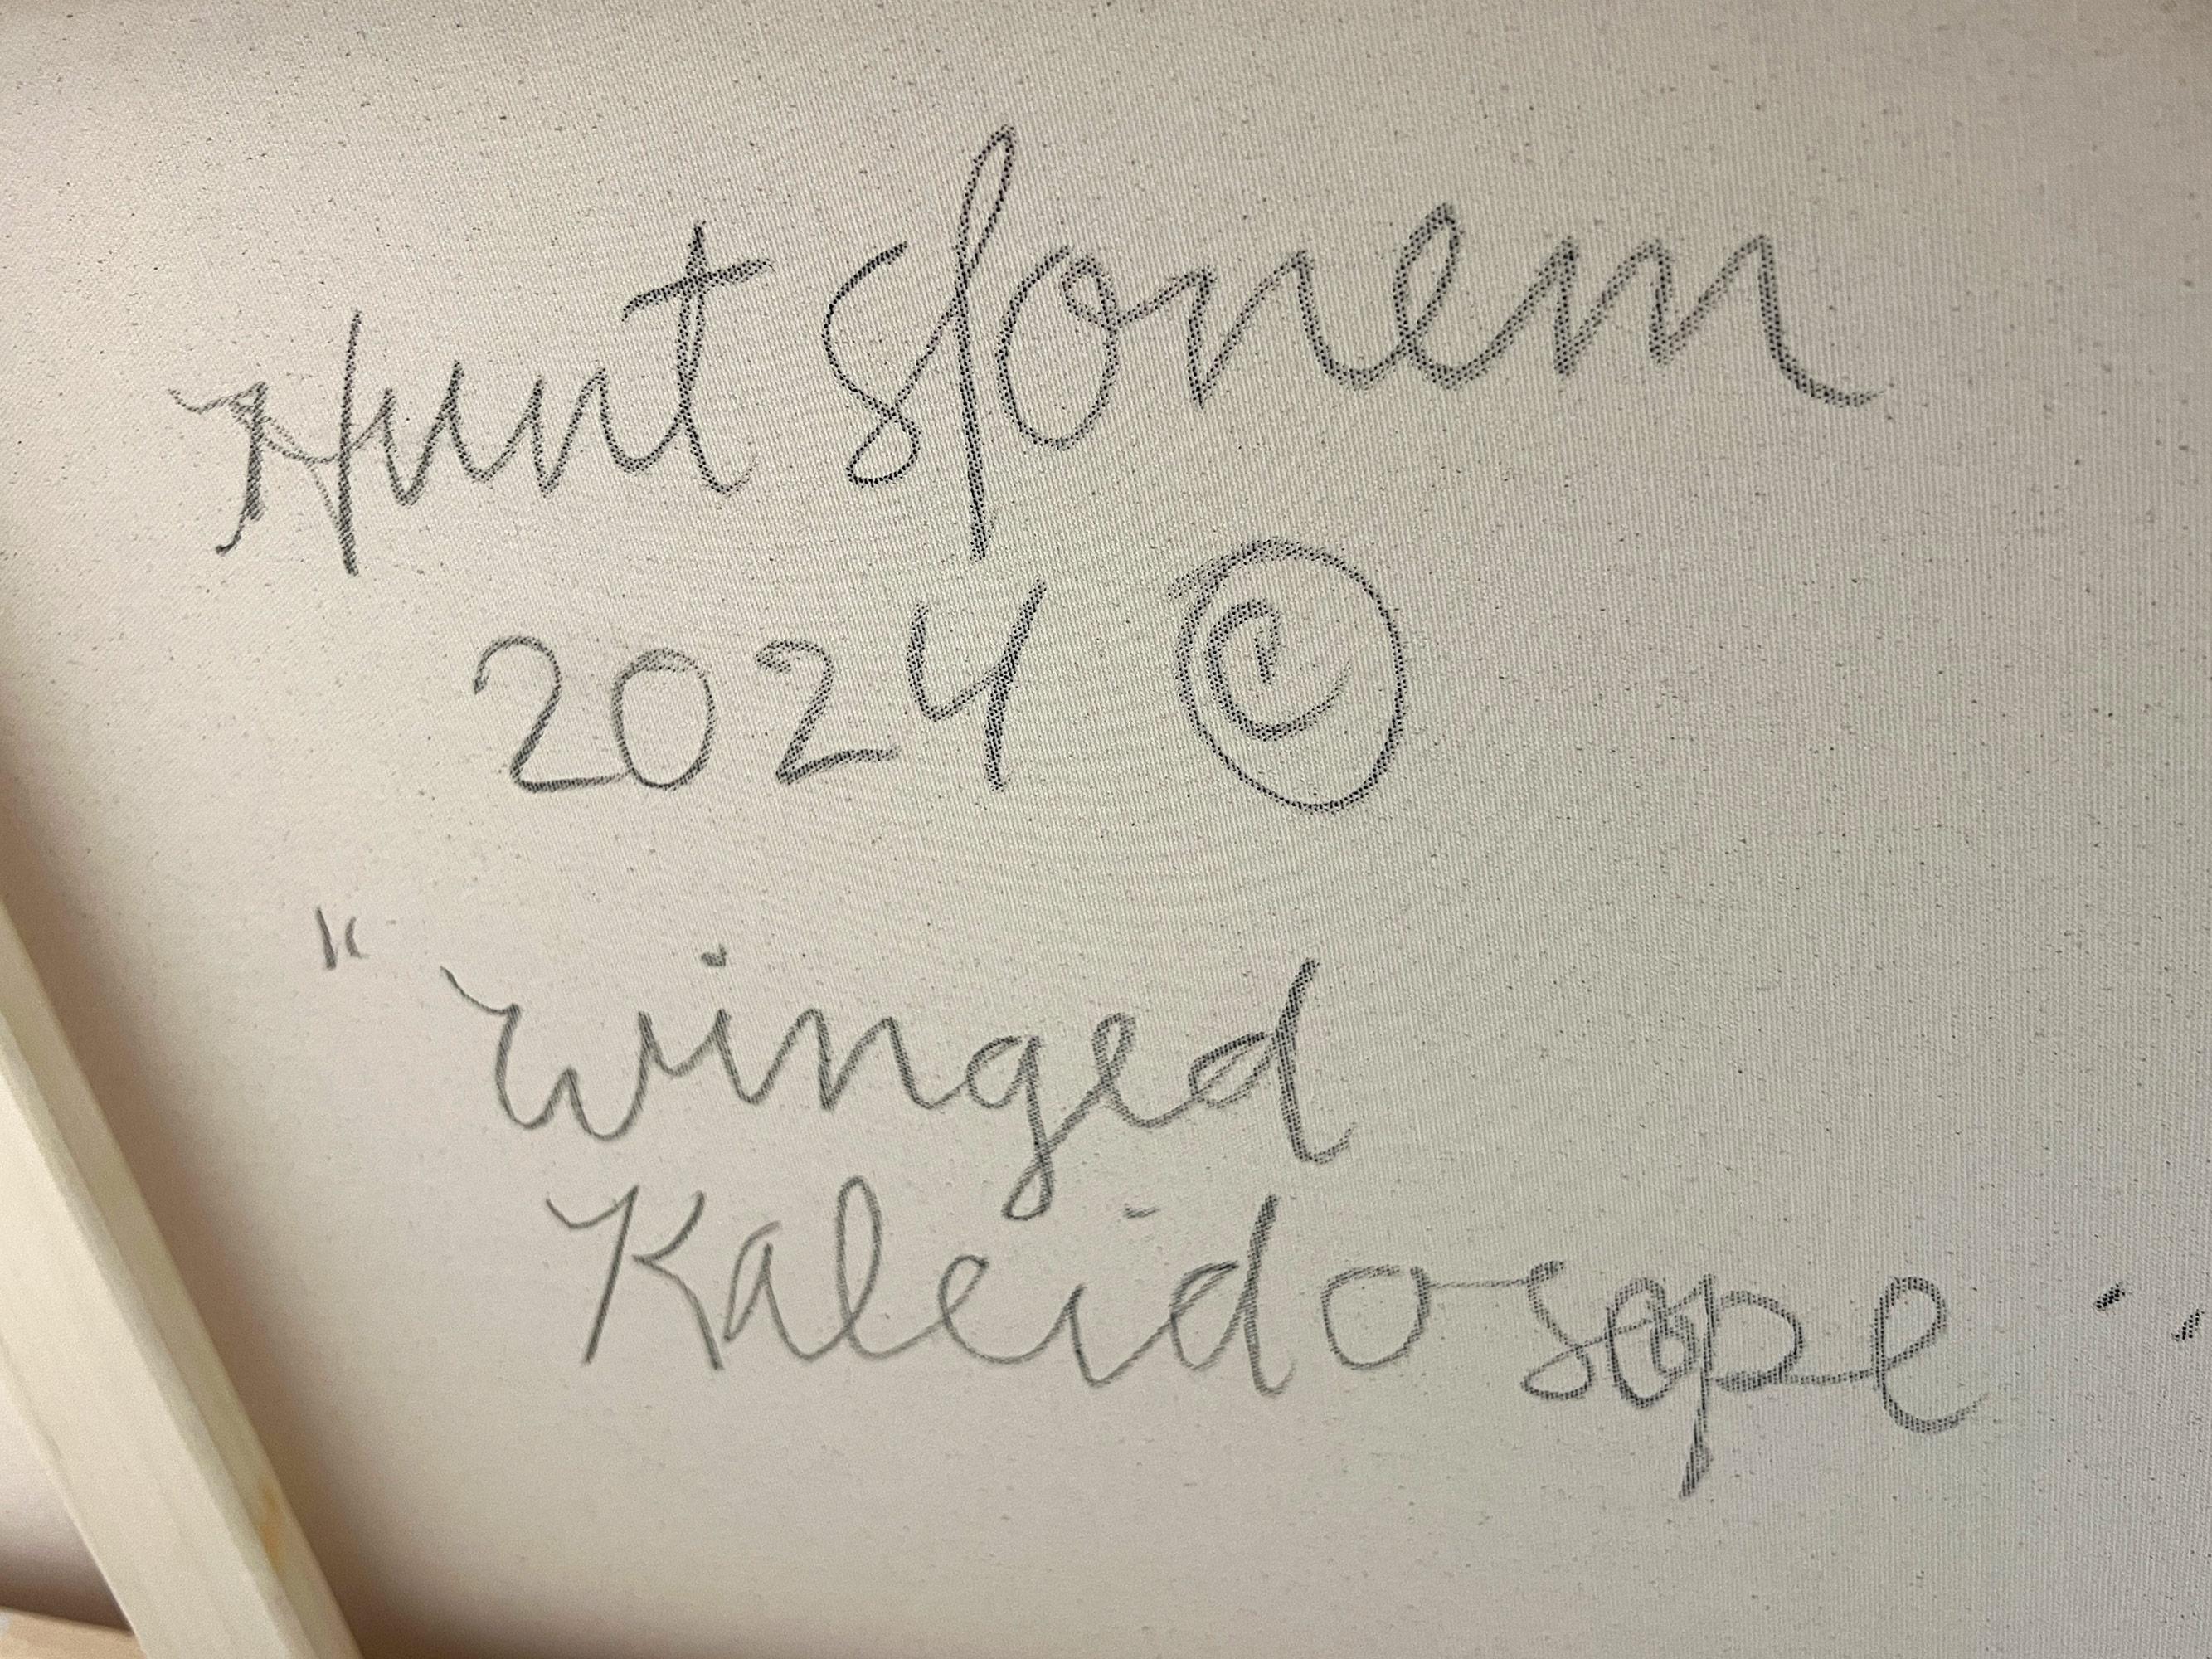 Hunt Slonem
2024 ©
"Winged
Kaleidoscope"